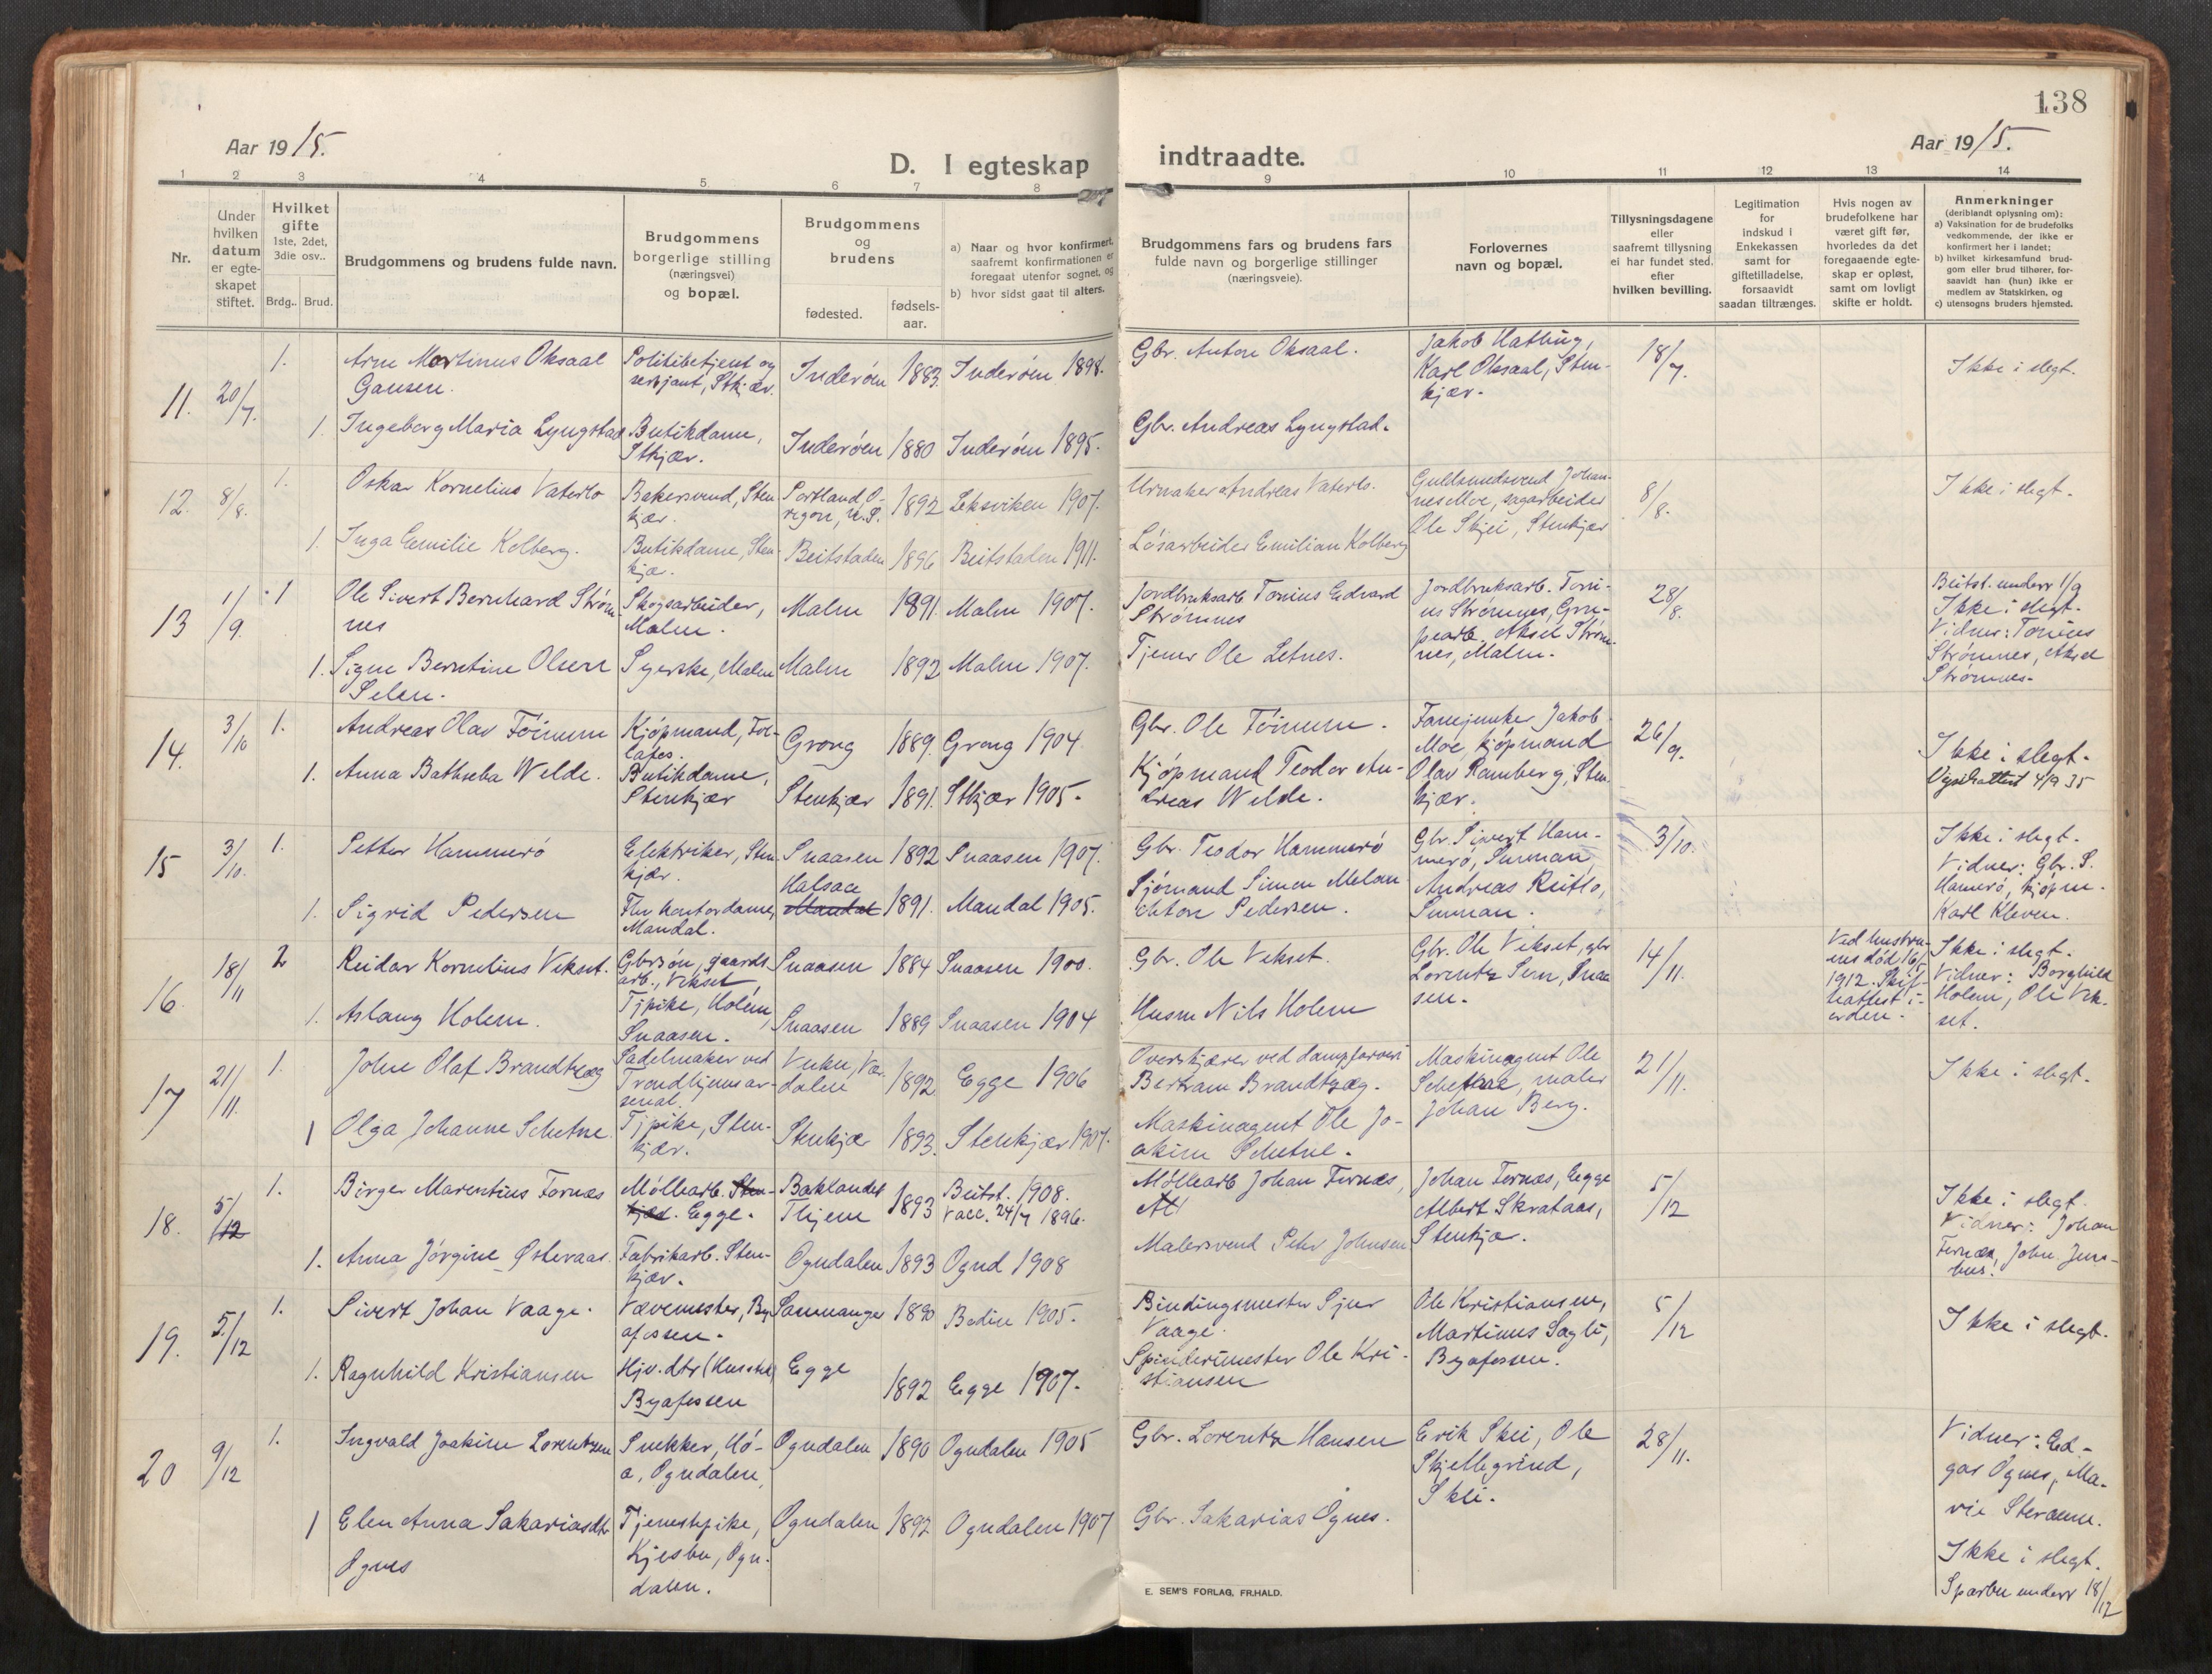 138
Aar 1915.
D. I egteskap indtraadte.
Aar 1915.
1 2 3 4 5 6 7 8 9 10 11 12 13 14
Nr.
Under hvilken datum er egte-skapet stiftet.
Hvilket gifte
1ste, 2det, 3die osv..
Brdg.. Brud.
Brudgommens og brudens fulde navn.
Brudgommens borgerlige stilling (næringsvei) og bopæl.
Brudgommens og brudens
fødested.
fødsels-aar.
a) Naar og hvor konfirmert, saafremt konfirmationen er foregaat utenfor sognet, og
b) hvor sidst gaat til alters.
Brudgommens fars og brudens fars fulde navn og borgerlige stillinger (næringsveie).
Forlovernes navn og bopæl.
Tillysningsdagene eller saafremt tillysning ei har fundet sted, efter hvilken bevilling.
Legitimation for indskud i Enkekassen samt for giftetilladelse, forsaavidt saadan tiltrænges.
Hvis nogen av brudefolkene har været gift før, hvorledes da det foregaaende egte-skap er opløst, samt om lovligt skifte er holdt.
Anmerkninger
(deriblandt oplysning om):
a) Vaksination for de brudefolks vedkommende, der ikke er konfirmert her i landet;
b) hvilket kirkesamfund brud-gom eller brud tilhører, for-saavidt han (hun) ikke er medlem av Statskirken, og
c) utensogns bruders hjemsted.
11. 20/7. 1. Arne Martinus Oksaal Gausen. Politibetjent og serjant, Stkjær. Inderøen 1883. Inderøen 1898. Gbr. Anton Oksaal. Jakob Hatling, Karl Oksaal, Sten-kjær. 18/7. Ikke i slegt.
1. Ingeborg Maria Lyngstad Butikdame, Stkjær. Inderøen 1880 Inderøen 1895. Gbr. Andreas Lyngstad.
12. 8/8. 1. Oskar Kornelius Vaterlo Bakersvend, Sten kjær. Portland O-regon, U.S. 1892 Leksviken 1907. Urmaker Andreas Vaterlo. Guldsmedsvend Johan-nes Moe, sagarbeider Ole Skjei, Stenkjær 8/8. Ikke i slegt.
1. Inga Emilie Kolberg. Butikdame, Sten-kjæ. Beitstaden 1896 Beitstaden 1911. Løsarbeider Emilian Kolberg
13 1/9. 1 Ole Sivert Bernhard Strøm-nes Skogsarbeider, Malm. Malm 1891. Malm 1907. Jordbruksarb Tonius Edvard Strømnes Jordbruksarb. Toni-us Strømnes, Gru-bearb. Aksel Strøm-nes, Malm. 28/8. Beitst. underr 1/9 Ikke i slegt. Vidner: Tonius Strømnes, Aksel Strømnes.
1. Signe Berntine Olsen Selen. Syerske, Malm Malm 1892 Malm 1907. Tjener Ole Letnes.
14. 3/10 1. Andreas Olav Føinum Kjøpmand, Fol-lafos. Grong 1889. Grong 1904. Gbr. Ole Føinum. Fanejunker Jakob Moe, kjøpmand Olav Ramberg, Sten kjær. 26/9. Ikke i slegt. Vigselsattest 4/9 35
1. Anna Bathseba Welde. Butikdame, Stenkjær Stenkjær 1891. Stkjær 1905. Kjøpmand Teodor An-dreas Welde.
15 3/10. 1. Petter Hammerø Elektriker, Sten kjær. Snaasen 1892 Snaasen 1907. Gbr. Teodor Hammerø Gbr. Sivert Ham-merø, Snaasen, Andreas Reitlo, 3/10. Ikke i slegt. Vidner: Gbr. S. Hamerø, kjøpm. Karl Kleven.
1. Sigrid Pedersen Fhv. kontordame, Mandal. Halsaa Mandal 1891. Mandal 1905. Sjømand Simen Melan-chton Pedersen.
16. 18/11 2 Reidar Kornelius Vekset. Gbrsøn, gaards-arb., Vekset Snaasen 1884 Snaasen 1900. Gbr. Ole Vekset. Gbr. Ole Vekset, gbr Lorentz Sem, Snaa sen. 14/11. Ved hustru-ens død 16/5 1912. Skif-teattest i orden. Ikke i slegt. Vidner: Borghild Holem, Ole Vek-set.
1. Aslaug Holem. Tjpike, Holem, Snaasen. Snaasen 1889 Snaasen 1904 Husm Nils Holem
17 21/11. 1. John Olaf Brandtzæg Sadelmaker ved Trondhjems ar-senal. Vuku, Vær-dalen 1892 Egge 1906 Overskjærer ved dampfarveri Bertram Brandtzæg. Maskinagent Ole Schetne, maler Johan Berg. 21/11. Ikke i slegt.
1 Olga Johanne Schetne Tjpike, Sten-kjær. Stenkjæ 1893. Stenkjær 1907. Maskinagent Ole Jo-akim Schetne.
18. 5/12 1. Birger Marentius Fornæs Møllearb. Sten-kjær. Egge. Baklandet Thjem 1893 Beitst. 1908. Vacc. 24/7 1896. Møllearb Johan Fornæs, Johan Fornæs, Egge Albert Skrataas, Stenkjæ. 5/12 Ikke i slegt. Vidner: Johan Fornæs, John Jens-hus.
1. Anna Jørgine Østeraas. Fabrikarb. Sten-kjær. Ogndalen 1893 Ognd 1908 Malersvend Peter Johnsen
19. 5/12 1. Sivert Johan Vaage. Vævemester, By-afossen. Sammanger 1890 Bodin 1905. Bindingsmester Sjur Vaage. Ole Kristiansen, Martinus Sagli, Byafossen. 5/12 Ikke i slegt.
1. Ragnhild Kristiansen Hjv. dtr (Husstel) Byafossen Egge 1892 Egge 1907. Spinderimester Ole Kri-stiansen
20 9/12 1. Ingvald Joakim Lorentzen Snekker, Mo-a, Ogndalen, Ogndalen 1890 Ogndalen 1905 Gbr. Lorentz Hansen Erik Skei, Ole Skjellegrind, Skei. 28/11. Vidner: Ed-gar Ognes, Ma-rie Steraune. Ikke i slegt. Sparbu underr 18/12
1 Elen Anna Sakariasdtr Ognes Tjenestepike, Kjesbu, Ogn-dalen. Ogndalen 1892 Ogndalen 1907 Gbr. Sakarias Ognes.
E. SEM'S FORLAG, FR.HALD.